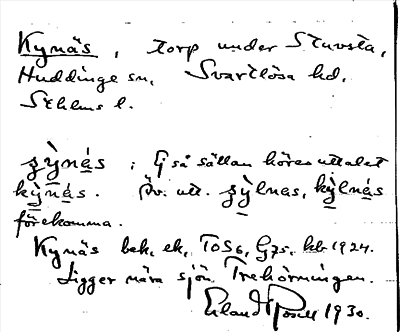 Kynäs, torp under Stuvsta,
Huddinge sn, Svartlösa hd,
Sthlms l.
ꞩỳnás; Ej så sällan höres uttalet
kỳnás. Öv. utt. ꞩỳlnas, kỳlnás
förekomma.
Kynäs bek. ek. TOS6, G75, kb 1924.
Ligger nära sjön Trehörningen.
Erland Rosell 1930.